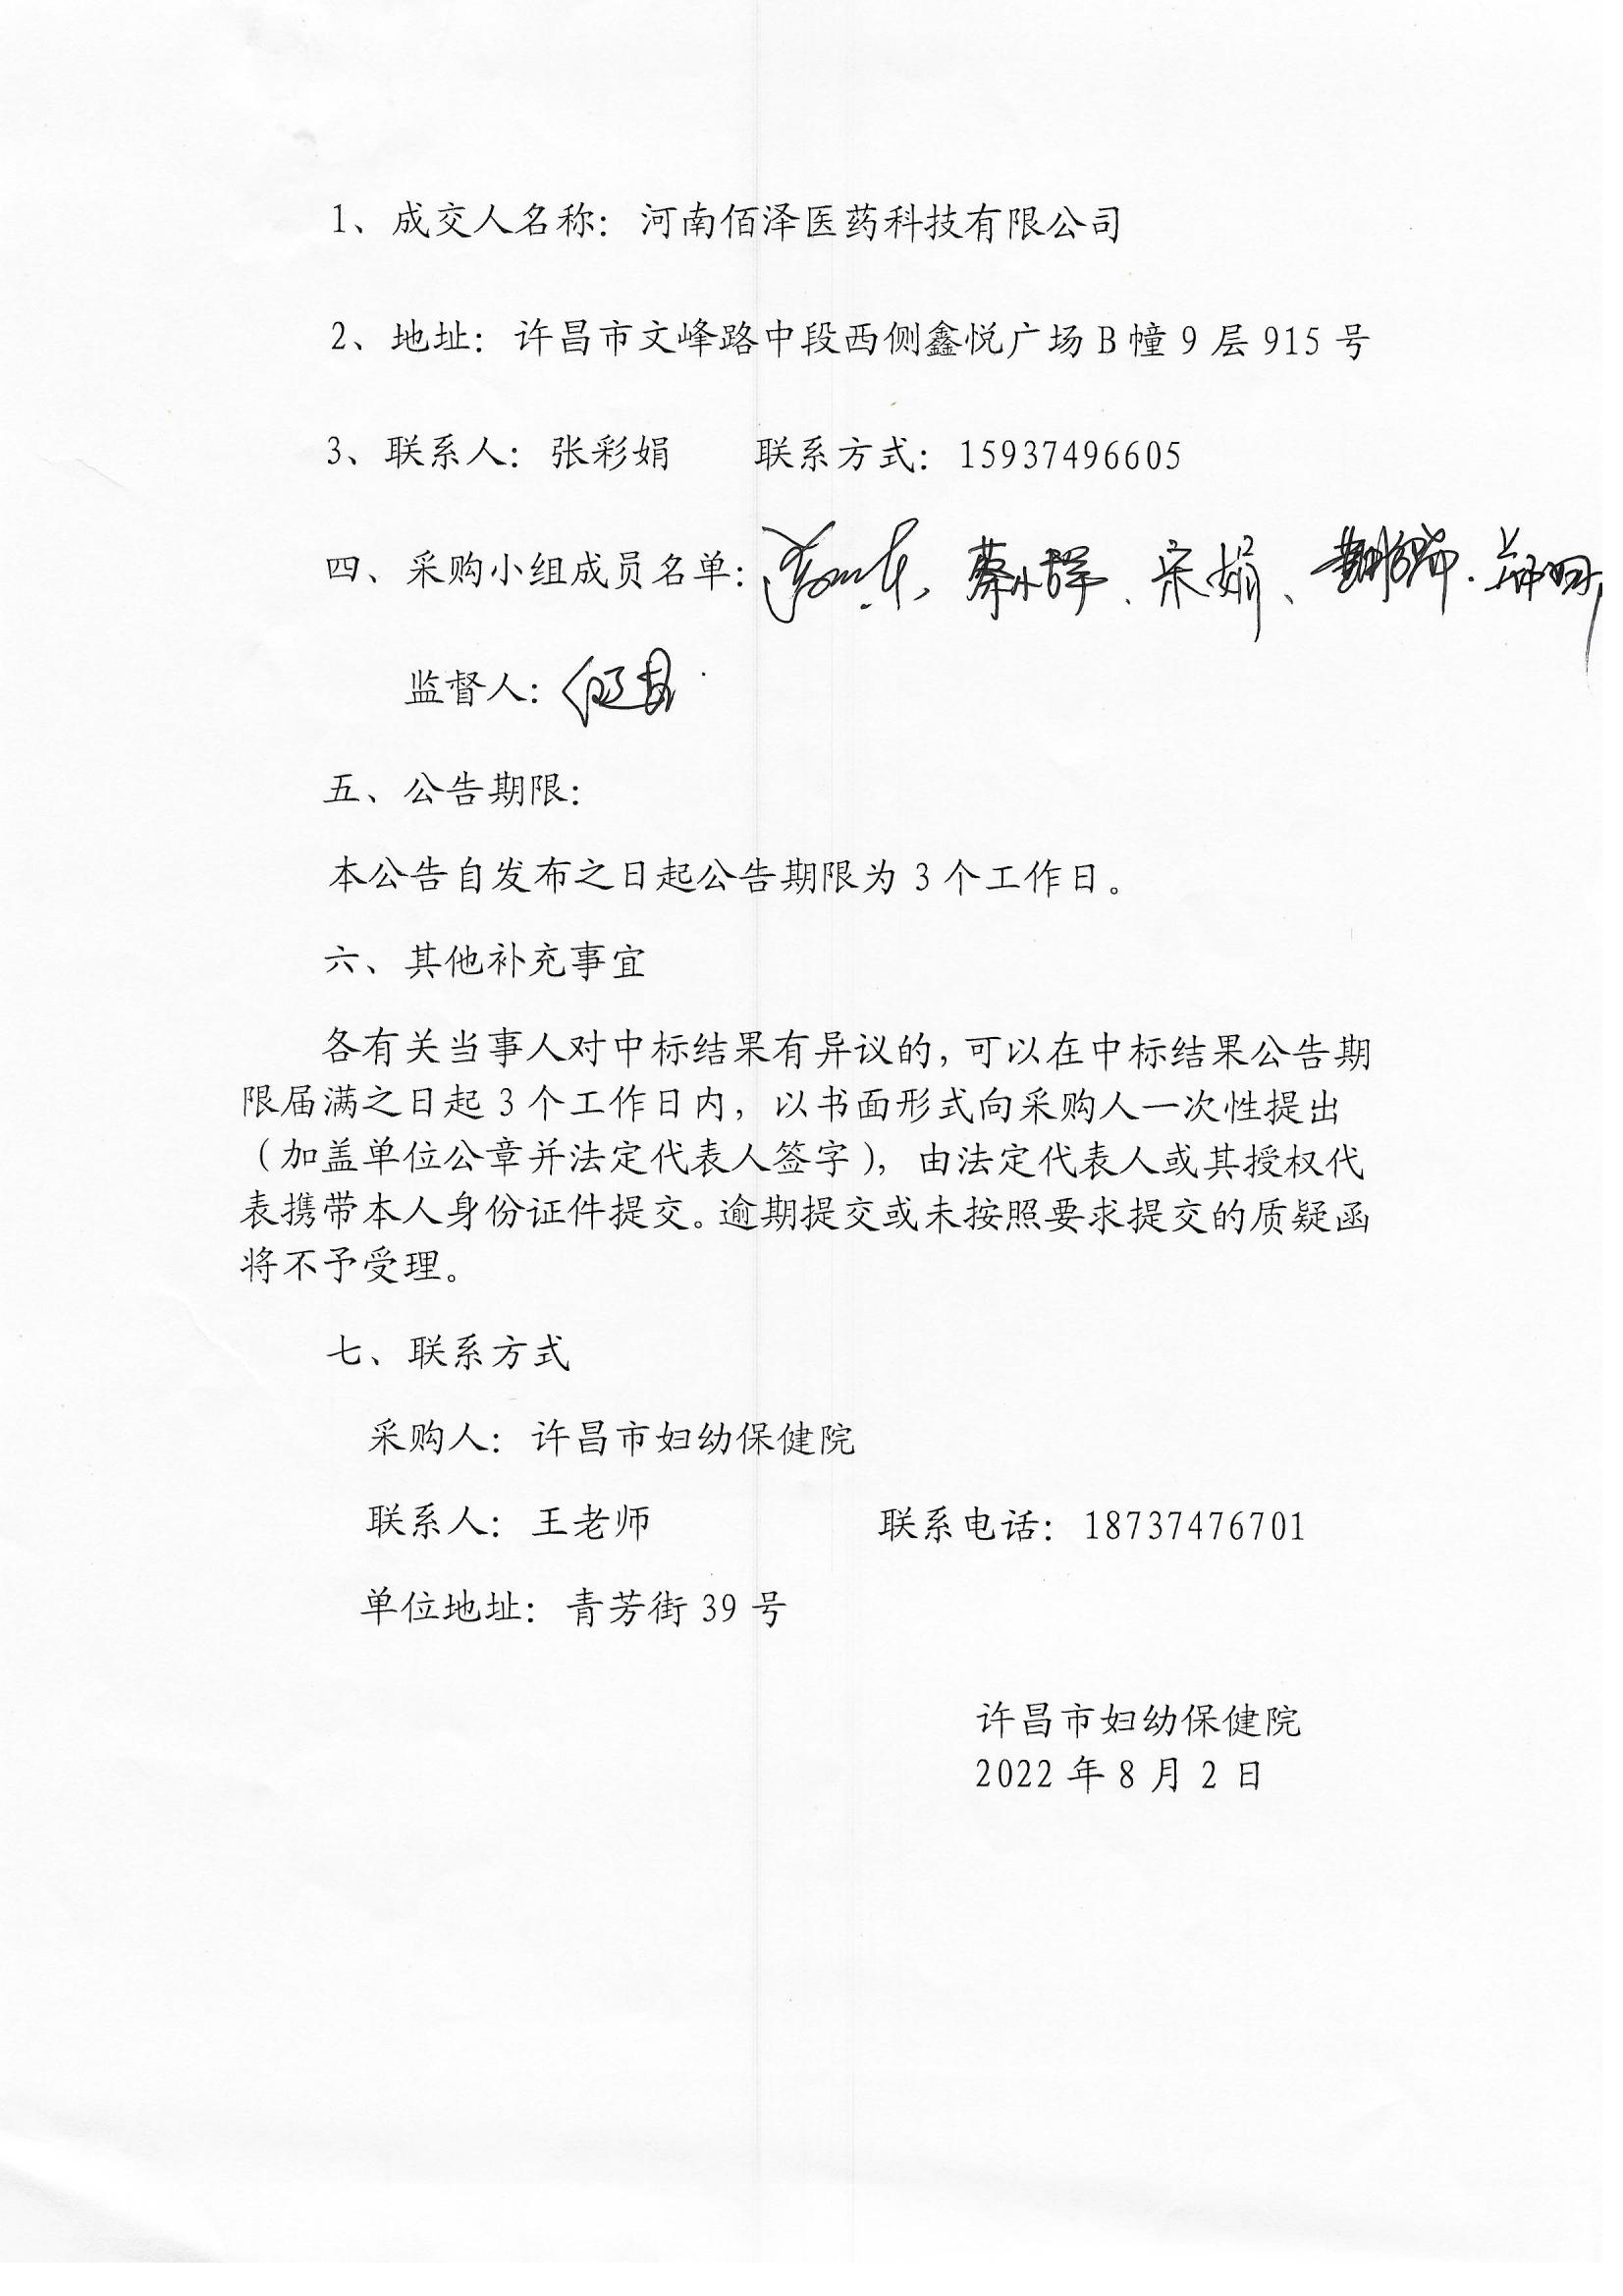 1、成交人名称：河南佰泽医药科技有限公司
2、地址：许昌市文峰路中段西侧鑫悦广场B幢9层915号
3、联系人：张彩娟 联系方式：15937496605
四、采购小组成员名单： 、宋娟、
监督人：
五、公告期限：
本公告自发布之日起公告期限为3个工作日。
六、其他补充事宜
各有关当事人对中标结果有异议的，可以在中标结果公告期
限届满之日起3个工作日内，以书面形式向采购人一次性提出
（加盖单位公章并法定代表人签字），由法定代表人或其授权代
表携带本人身份证件提交。逾期提交或未按照要求提交的质疑函
将不予受理。
七、联系方式
采购人：许昌市妇幼保健院
联系人：王老师 联系电话：18737476701
单位地址：青芳街39号
许昌市妇幼保健院
2022年8月2日